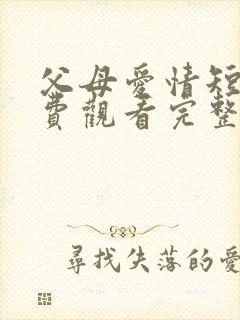 父母愛情短
費觀看完整
尋找失落的愛